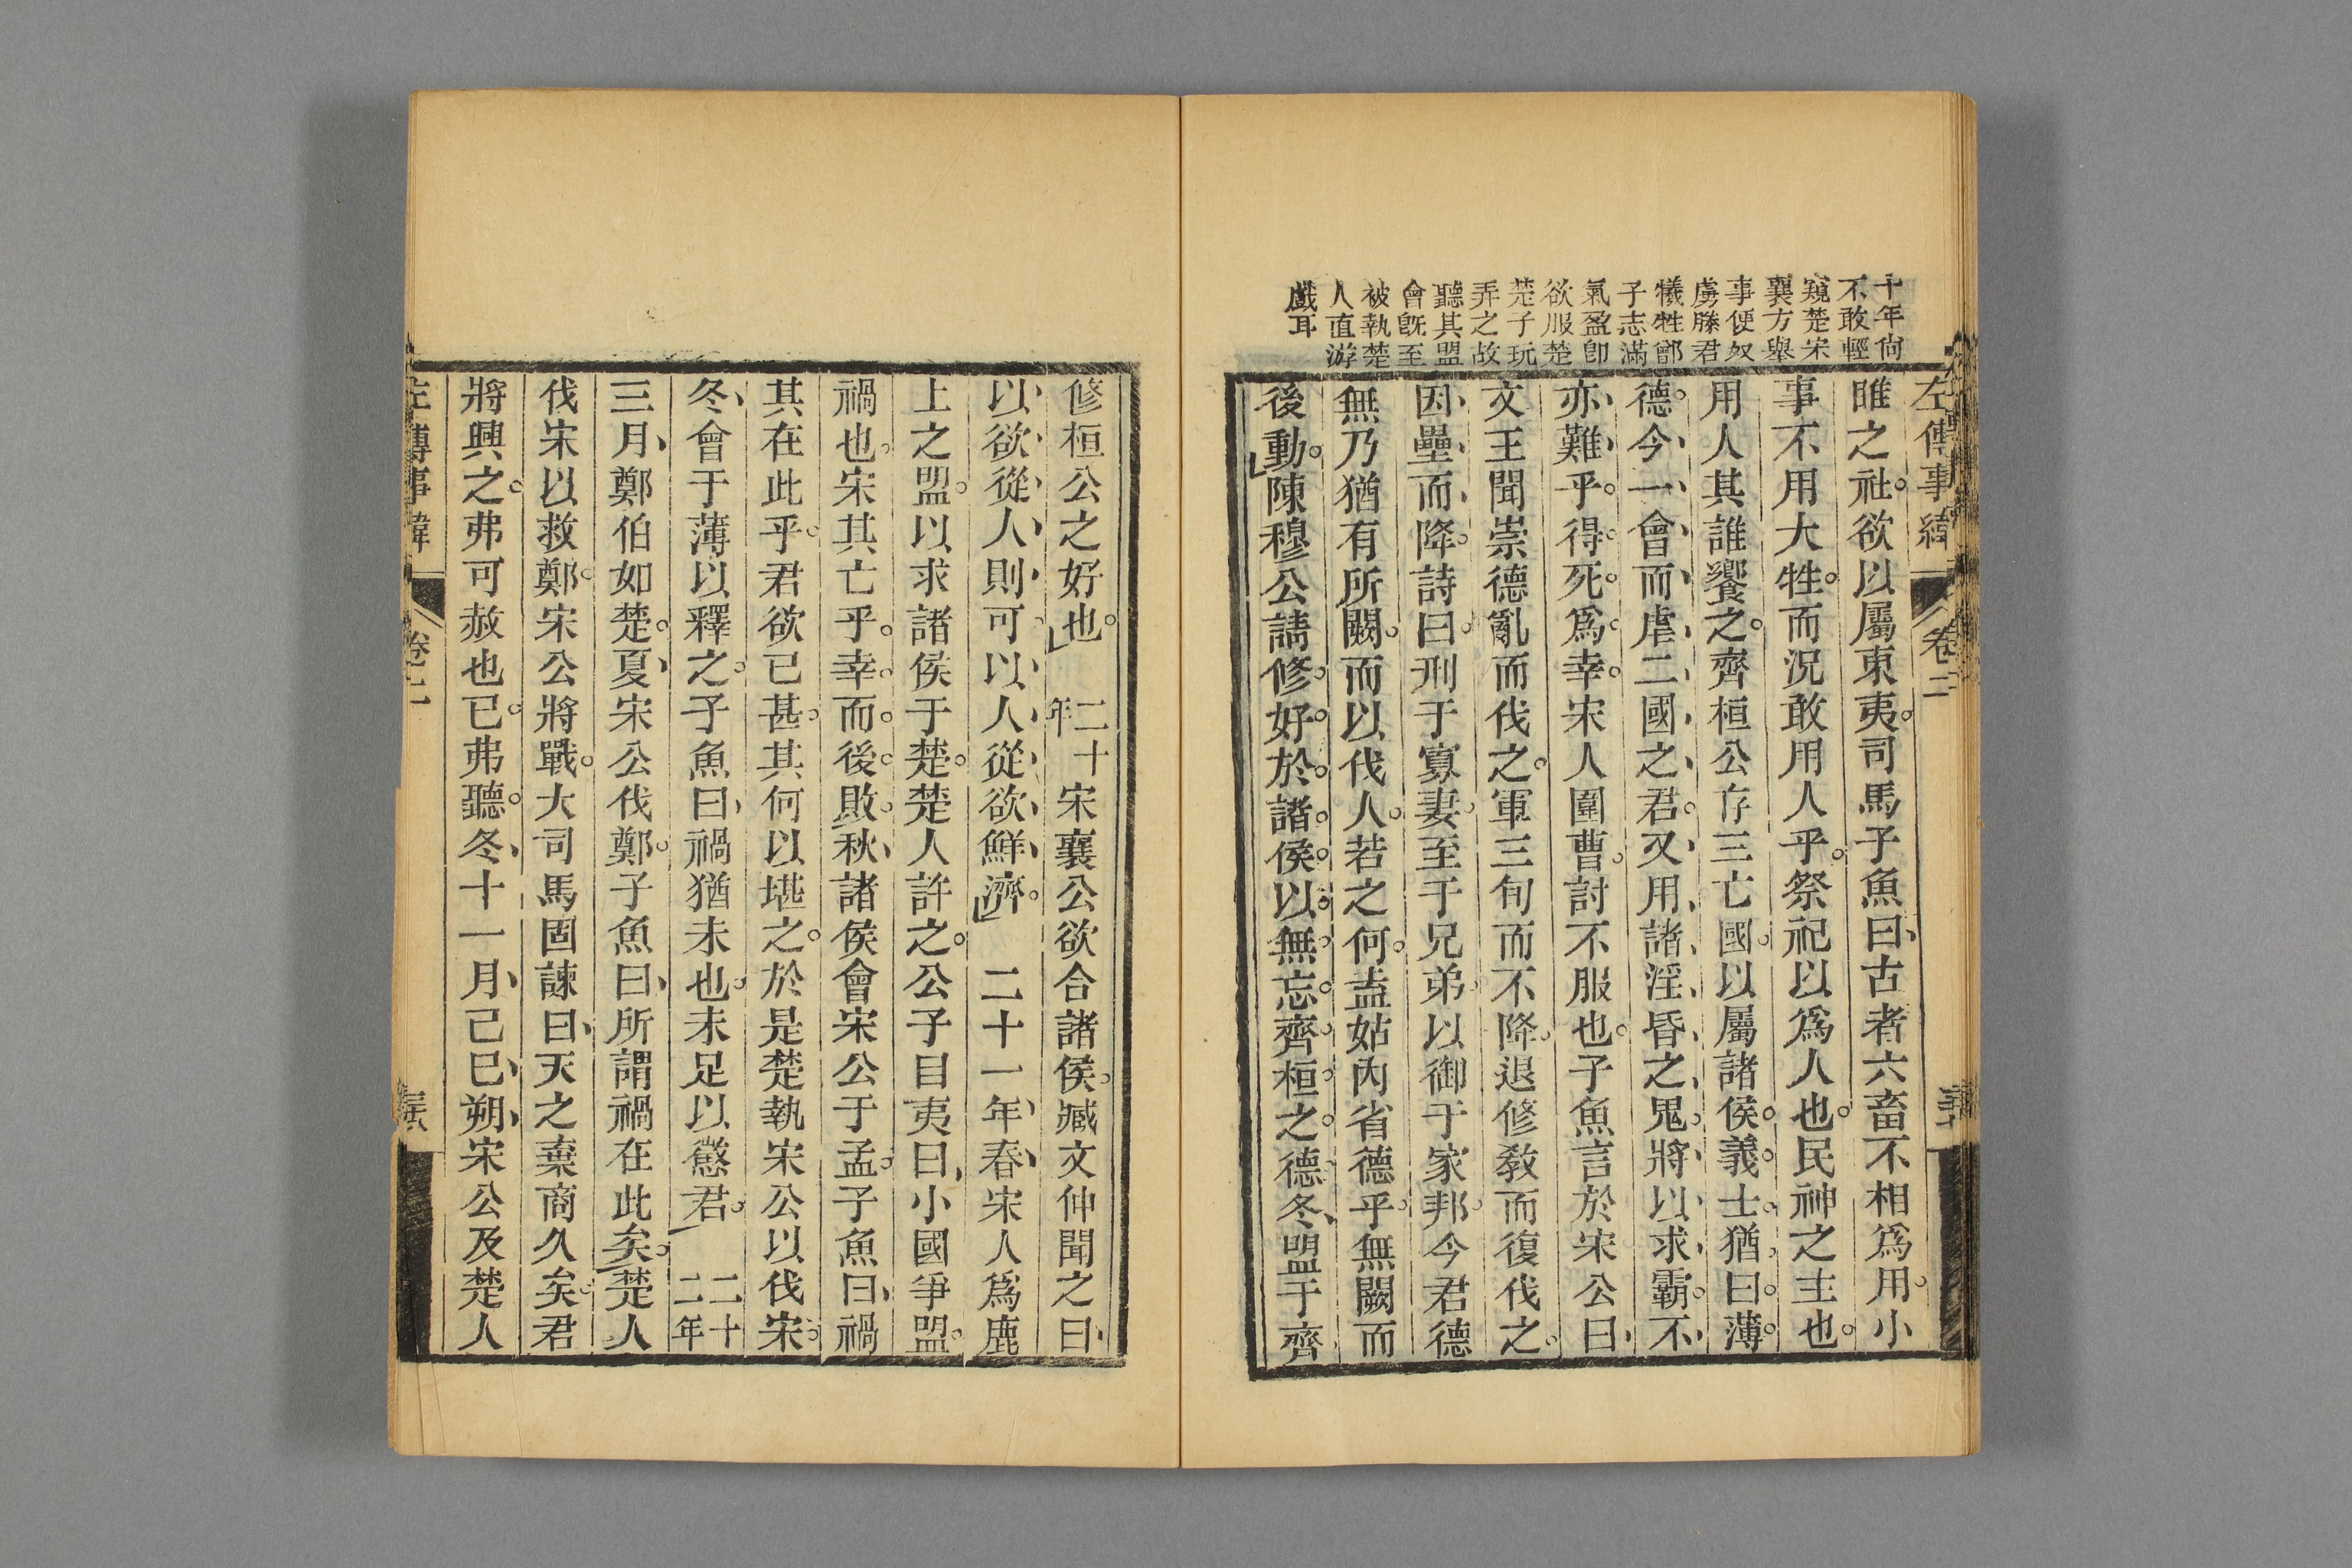 十年尙
不敢輕
窺楚宋
襄方舉
事便奴
虜滕君
犧牲鄫
子志滿
氣盈卽
欲服楚
楚子玩
弄之故
聽其盟
會旣至
被執楚
人直游
戲耳
左傳事緯 卷二
睢之社欲以屬東夷司馬子魚曰古者六畜不相爲用小
事不用大牲而況敢用人乎祭祀以爲人也民神之主也
用人其誰饗之齊桓公存三亡國以屬諸侯義士猶曰薄
德今一會而虐二國之君又用諸淫昏之鬼將以求霸不
亦難乎得死爲幸宋人圍曹討不服也子魚言於宋公曰
文王聞崇德亂而伐之軍三旬而不降退修敎而復伐之
因壘而降詩曰刑于寡妻至于兄弟以御于家邦今君德
無乃猶有所闕而以伐人若之何盍姑內省德乎無闕而
後動陳穆公請修好於諸侯以無忘齊桓之德冬盟于齊
修桓公之好也 二十年宋襄公欲合諸侯臧文仲聞之曰
以欲從人則可以人從欲鮮濟 二十一年春宋人爲鹿
上之盟以求諸侯于楚楚人許之公子目夷曰小國爭盟
禍也宋其亡乎幸而後敗秋諸侯會宋公于孟子魚曰禍
其在此乎君欲已甚其何以堪之於是楚執宋公以伐宋
冬會于薄以釋之子魚曰禍猶未也未足以懲君 二十二年
三月鄭伯如楚夏宋公伐鄭子魚曰所謂禍在此矣楚人
伐宋以救鄭宋公將戰大司馬固諫曰天之棄商久矣君
將興之弗可赦也已弗聽冬十一月己巳朔宋公及楚人
左傳事緯 卷二